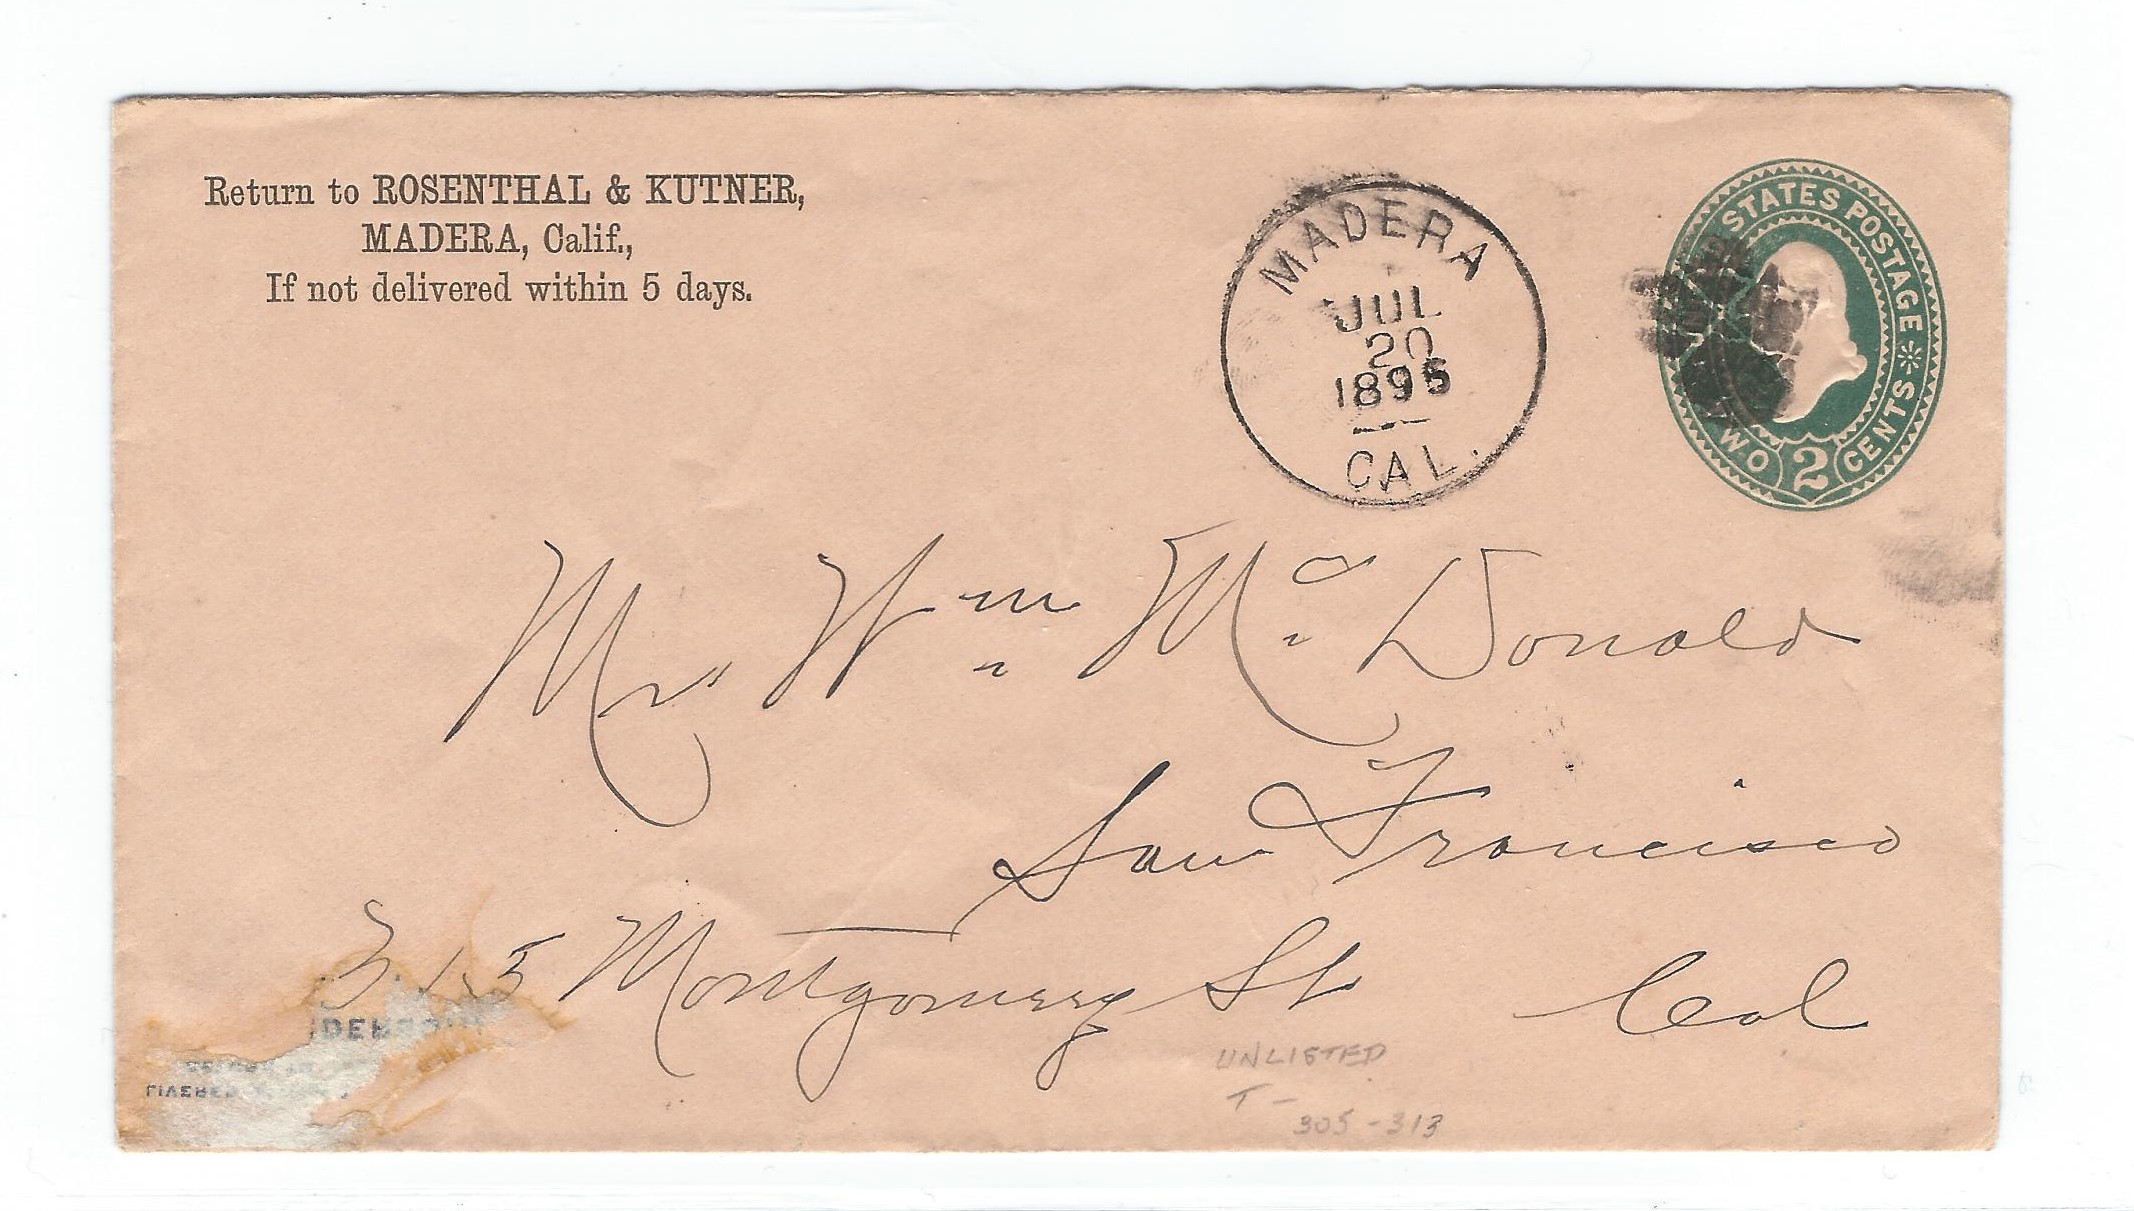 Return to ROSENTHAL & KUTNER,
MADERA, Calif.,
If not delivered within 5 days.
MADERA
JUL
20
1895
CAL.
STATES POSTAGE
TWO 2 CENTS
Mr Wm Mc Donald
San Francisco
315 Montgomery St Cal
UNLISTED
T-
305-313